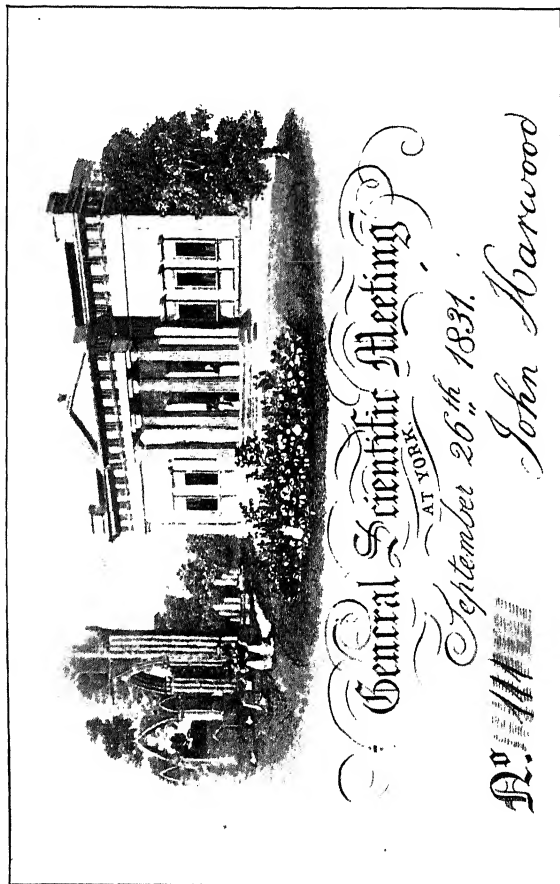 General Scientific Meeting
AT YORK.
September 26th 1831.
No. 111
John Harwood